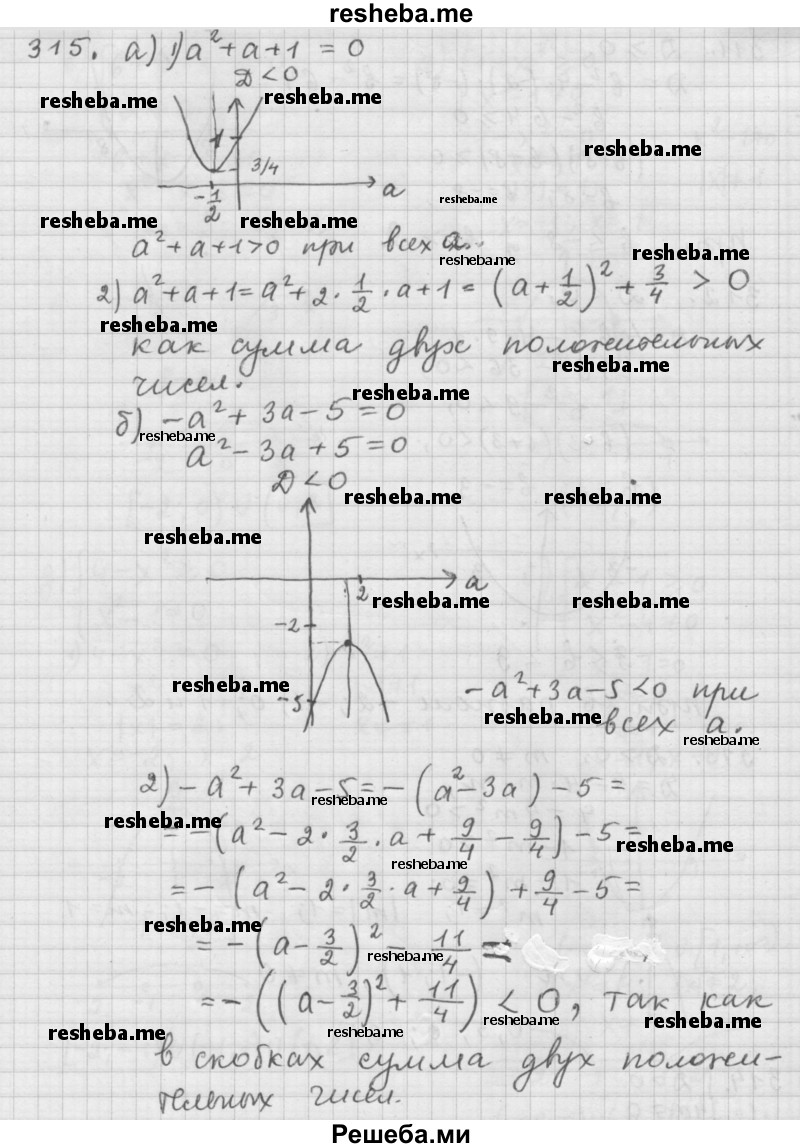 resheba.me
315. а) 1) a² + a + 1 = 0
D < 0
resheba.me resheba.me
resheba.me
1
3/4
a
-1/2
resheba.me
resheba.me resheba.me
a² + a + 1 > 0 при всех a.
resheba.me resheba.me
2) a² + a + 1 = a² + 2 · 1/2 · a + 1 = (a + 1/2)² + 3/4 > 0
resheba.me
как сумма двух положительных
resheba.me
чисел.
resheba.me
б) -a² + 3a - 5 = 0
resheba.me
a² - 3a + 5 = 0
D < 0
resheba.me resheba.me
resheba.me
a
2
resheba.me resheba.me
-2
resheba.me
-5
-a² + 3a - 5 < 0 при
resheba.me
всех a.
resheba.me
2) -a² + 3a - 5 = -(a² - 3a) - 5 =
resheba.me
resheba.me
= -(a² - 2 · 3/2 · a + 9/4 - 9/4) - 5 =
resheba.me
resheba.me
= -(a² - 2 · 3/2 · a + 9/4) + 9/4 - 5 =
resheba.me
= -(a - 3/2)² - 11/4 =
resheba.me
= -((a - 3/2)² + 11/4) < 0, так как
resheba.me resheba.me
resheba.me resheba.me
в скобках сумма двух положи-
тельных чисел.
Решеба.ми